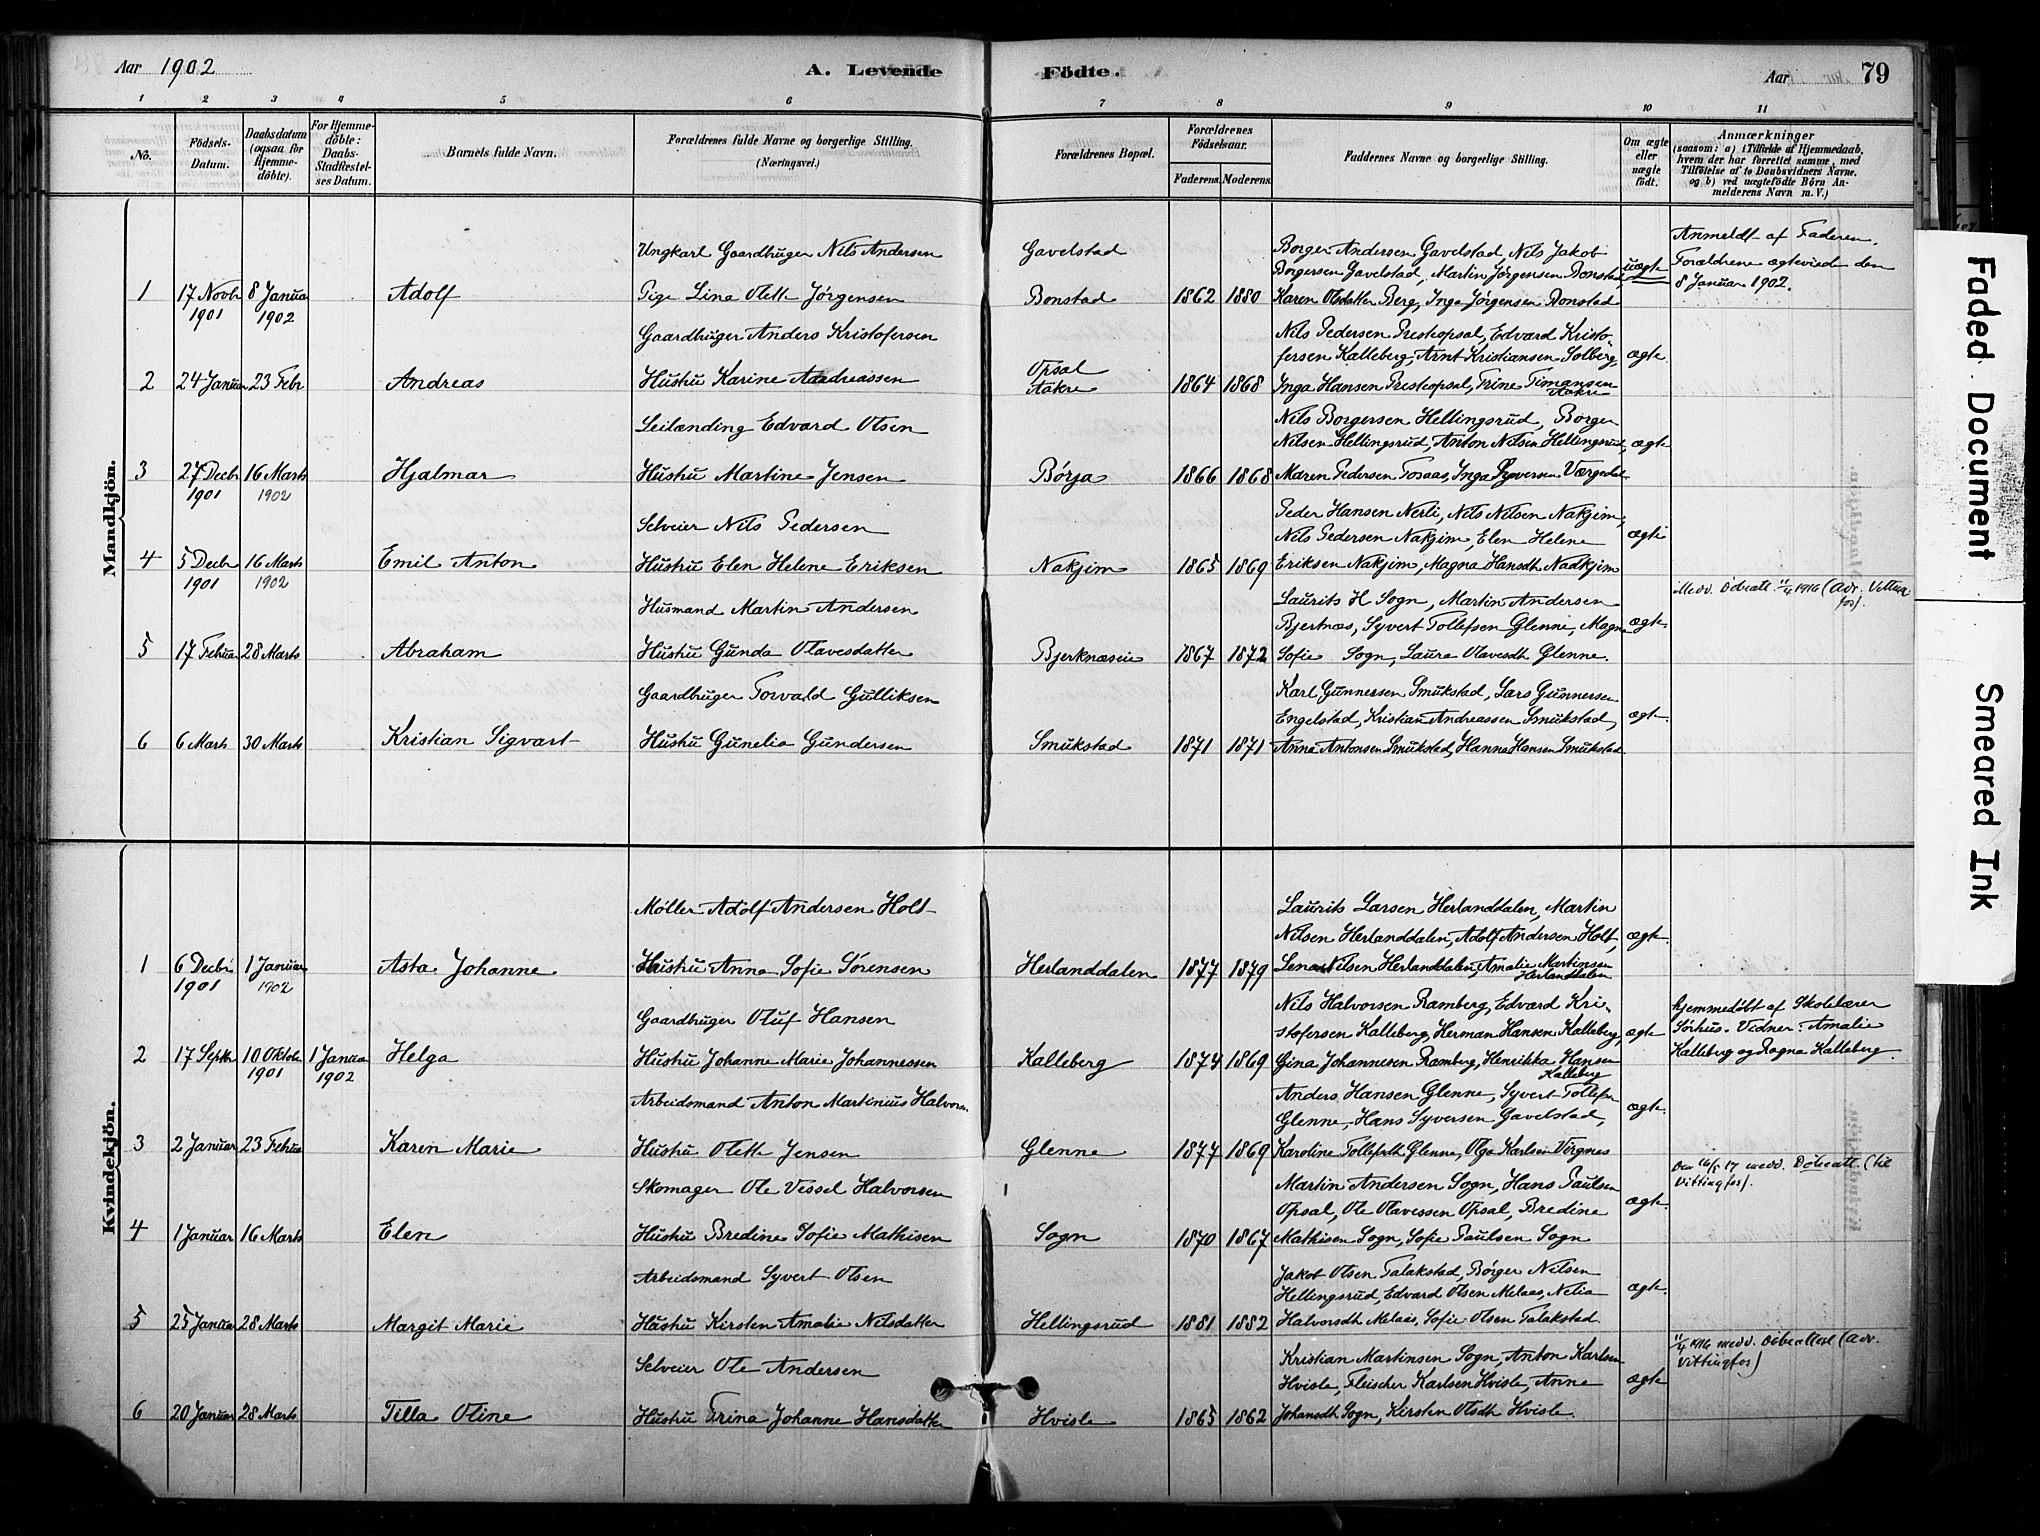 Aar 1902
A. Levende Födte.
Aar
79
1 2 3 4 5 6 7 8 9 10 11
No.
Födsels-
Datum.
Daabsdatum
(ogsaa for
Hjemme-
döbte).
For Hjemme-
döbte:
Daabs-
Stadfæstel-
ses Datum.
Barnets fulde Navn.
Forældrenes fulde Navne og borgerlige Stilling.
(Næringsvei.)
Forældrenes Bopæl.
Forældrenes
Födselsaar.
Faderens. Moderens.
Faddernes Navne og borgerlige Stilling.
Om ægte
eller
uægte
födt.
Anmærkninger
(saasom: a) i Tilfælde af Hjemmedaab,
hvem der har forrettet samme, med
Tilföielse af to Daabsvidners Navne,
og b) ved uægtefödte Börn An-
melderens Navn m. V.)
Mandkjön.
1
17 Novbr
1901
8 Januar
1902
Adolf
Ungkarl Gaardbruger Nils Andersen
Pige Lina Olette Jørgensen
Gavelstad
Bonstad
1862 1880
Borger Andersen Gavelstad, Nils Jakob
Borgersen Gavelstad, Martin Jørgensen Bonstad,
Karen Olsdatter Berg, Inga Jørgensen Bonstad
uægte
Anmeldt af Faderen.
Forældrene ægteviede den
8 Januar 1902.
2
24 Januar
23 Febr
Andreas
Gaardbruger Anders Kristofersen
Hustru Karine Andreassen
Opsal
Aakre
1864 1868
Nils Pedersen Presteopsal, Edvard Kristo-
fersen Kalleberg, Arnt Kristiansen Solberg,
Inga Hansen Presteopsal, Trine Timansen
Aakre
ægte
3
27 Decbr
1901
16 Marts
1902
Hjalmar
Leilænding Edvard Olsen
Hustru Martine Jensen
Börja
1866 1868
Nils Borgersen Hellingsrud, Borger
Nilsen Hellingsrud, Anton Nilsen Hellingsrud,
Maren Pedersen Fosaas, Inga SyversenVærgedal
ægte
4
5 Decbr
1901
16 Marts
1902
Emil Anton
Selveier Nils Pedersen
Hustru Elen Helene Eriksen
Nakjim
1865 1869
Peder Hansen Nerli, Nils Nilsen Nakjim,
Nils Pedersen Nakjim, Elen Helene
Eriksen Nakjim, Magna Hansdtr Nadkjim
ægte
5
17 Februar
28 Marts
Abraham
Husmand Martin Andersen
Hustru Gunda Olavesdatter
Bjerknæseie
1867 1872
Laurits H Sogn, Martin Andersen
Bjertnæs, Syvert Tollefsen Glenne, Magna
Sofie Sogn, Laura Olavesdtr Glenne.
ægte
Medd. Dåbsatt. 11/4 1916 (Adr. Vittingfos).
6
6 Marts
30 Marts
Kristian Sigvart
Gaardbruger Torvald Gulliksen
Hustru Gunelia Gundersen
Smukstad
1871 1871
Karl Gunnersen Smukstad, Lars Gunnersen
Engelstad, Kristian Andreassen Smukstad,
Anna Antonsen Smukstad, Hanna Hansen Smukstad
ægte
Kvindekjön.
1
6 Decbr
1901
1 Januar
1902
Asta Johanne
Møller Adolf Andersen Holt
Hustru Anna Sofie Sørensen
Herlanddalen
1877 1879
Laurits Larsen Herlanddalen, Martin
Nilsen Herlanddalen, Adolf Andersen Holt,
Lena Nilsen Herlanddalen, Amalie Martinsen
Herlanddalen
ægte
2
17 Septbr
10 Oktober
1901
1 Januar
1902
Helga
Gaardbruger Oluf Hansen
Hustru Johanne Marie Johannessen
Kalleberg
1874 1869
Nils Halvorsen Ramberg, Edvard Kri-
stofersen Kalleberg, Herman Hansen Kalleberg,
Gina Johannesen Ramberg, Henrikka Hansen
Kalleberg
ægte
hjemmedøbt af Skolelærer
Sörhus. Vidner: Amalie
Kalleberg og Ragna Kalleberg.
3
2 Januar
23 Februar
Karen Marie
Arbeidsmand Anton Martinius Halvorsen
Hustru Olette Jensen
Glenne
1877 1869
Anders Hansen Glenne, Syvert Tollefsen
Glenne, Hans Syversen Gavelstad,
Karoline Tollefsdtr Glenne, Olga Karlsen Vörgnes
ægte
4
1 Januar
16 Marts
Elen
Skomager Ole Vessel Halvorsen
Hustru Bredine Sofie Mathisen
Sogn
1870 1867
Martin Andersen Sogn, Hans Paulsen
Opsal, Ole Olavessen Opsal, Bredine
Mathisen Sogn, Sofie Paulsen Sogn
ægte
Den 16/5 17 medd. Dåbsatt. (til
Vittingfos).
5
25 Januar
28 Marts
Margit Marie
Arbeidsmand Syvert Olsen
Hustru Kirsten Amalie Nilsdatter
Hellingsrud
1881 1882
Jakob Olsen Talakstad, Börger Nilsen
Hellingsrud, Edvard Olsen Melaas, Nelia
Halvorsdtr Melaas, Sofie Olsen Talakstad.
ægte
6
20 Januar
28 Marts
Tilla Oline
Selveier Ole Andersen
Hustru Trina Johanne Hansdatter
Hvisle
1865 1862
Kristian Martinsen Sogn, Anton Karlsen
Hvisle, Fleischer Karlsen Hvisle, Anne
Johansdtr Sogn, Kirsten Olsdtr Hvisle.
ægte
11/4 1916 medd. Dåbsattest (Adr.
Vittingfos)
Faded Document
Smeared Ink